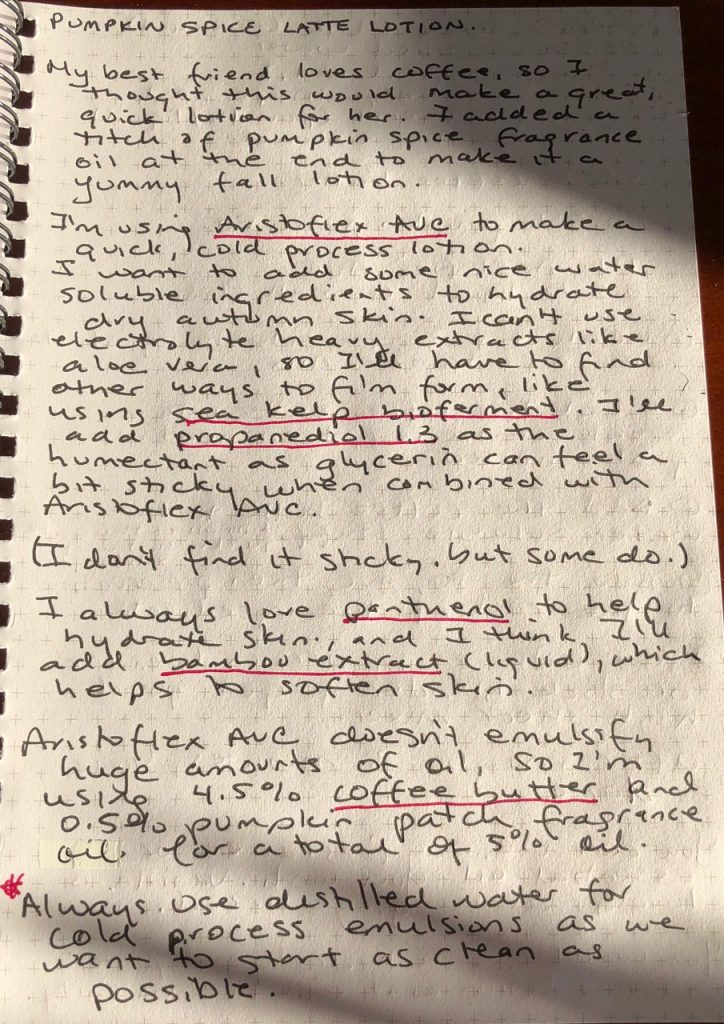 PUMPKIN SPICE LATTE LOTION.
My best friend loves coffee, so I
thought this would make a great,
quick lotion for her. I added a
titch of pumpkin spice fragrance
oil at the end to make it a
yummy fall lotion.
I'm using Aristoflex AVC to make a
quick, cold process lotion.
I want to add some nice water
soluble ingredients to hydrate
dry autumn skin. I can't use
electrolyte heavy extracts like
aloe vera, so I'll have to find
other ways to film form, like
using sea kelp bioferment. I'll
add propanediol 1,3 as the
humectant as glycerin can feel a
bit sticky when combined with
Aristoflex AVC.
(I don't find it sticky. but some do.)
I always love panthenol to help
hydrate skin., and I think I'll
add bamboo extract (liquid), which
helps to soften skin.
Aristoflex AVC doesn't emulsify
huge amounts of oil, so I'm
using 4.5% coffee butter and
0.5% pumpkin patch fragrance
oil. for a total of 5% oil.
*Always use distilled water for
cold process emulsions as we
want to start as clean as
possible.